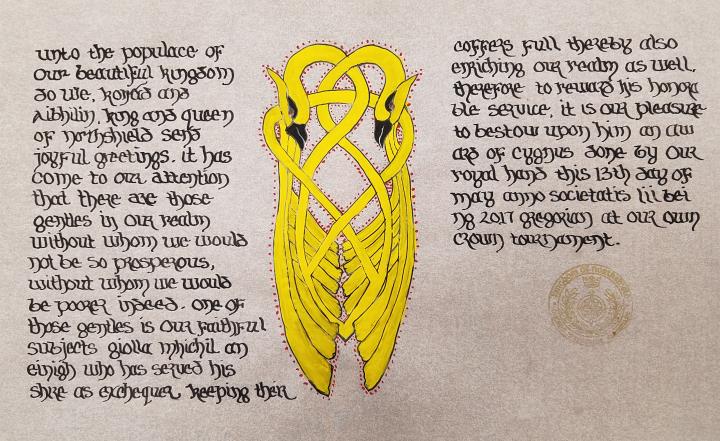 unto the populace of
our beautiful kingdom
do we, konrad and
aibhilin, king and queen
of northshield send
joyful greetings. it has
come to our attention
that there are those
gentles in our realm
without whom we would
not be so prosperous,
without whom we would
be poorer indeed. one of
those gentles is our faithful
subjects giolla mhichil an
einigh who has served his
shire as exchequer, keeping their
coffers full thereby also
enriching our realm as well,
therefore to reward his honora
ble service, it is our pleasure
to bestow upon him an aw
ard of cygnus done by our
royal hand this 13th day of
may anno societatis lii bei
ng 2017 gregorian at our own
crown tournament.